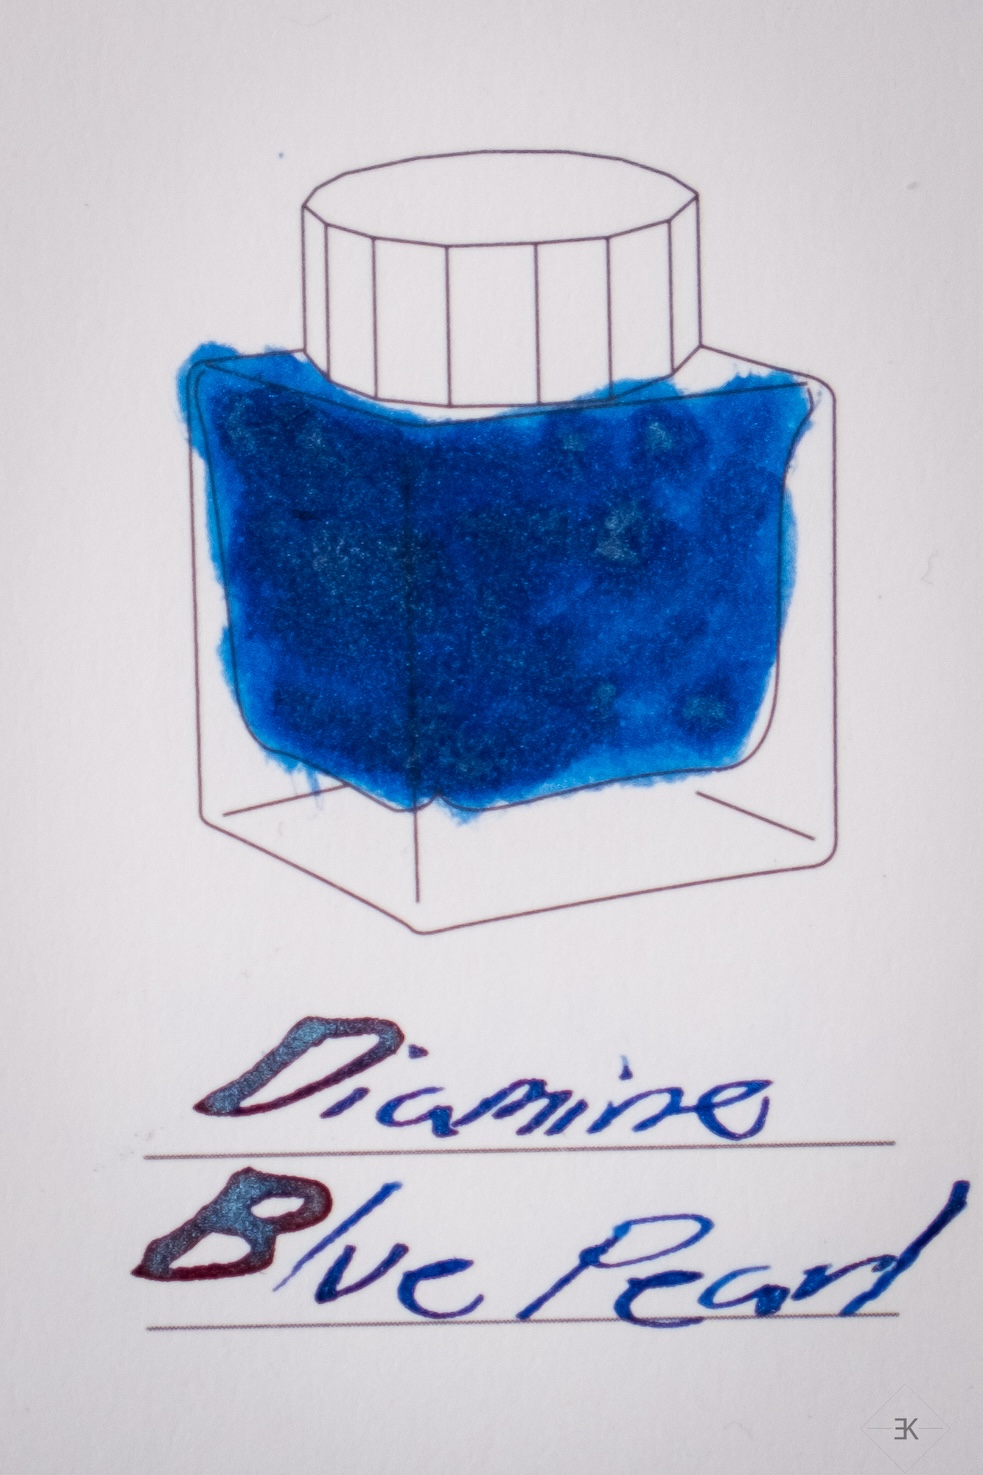 Diamine
Blue Pearl
EK